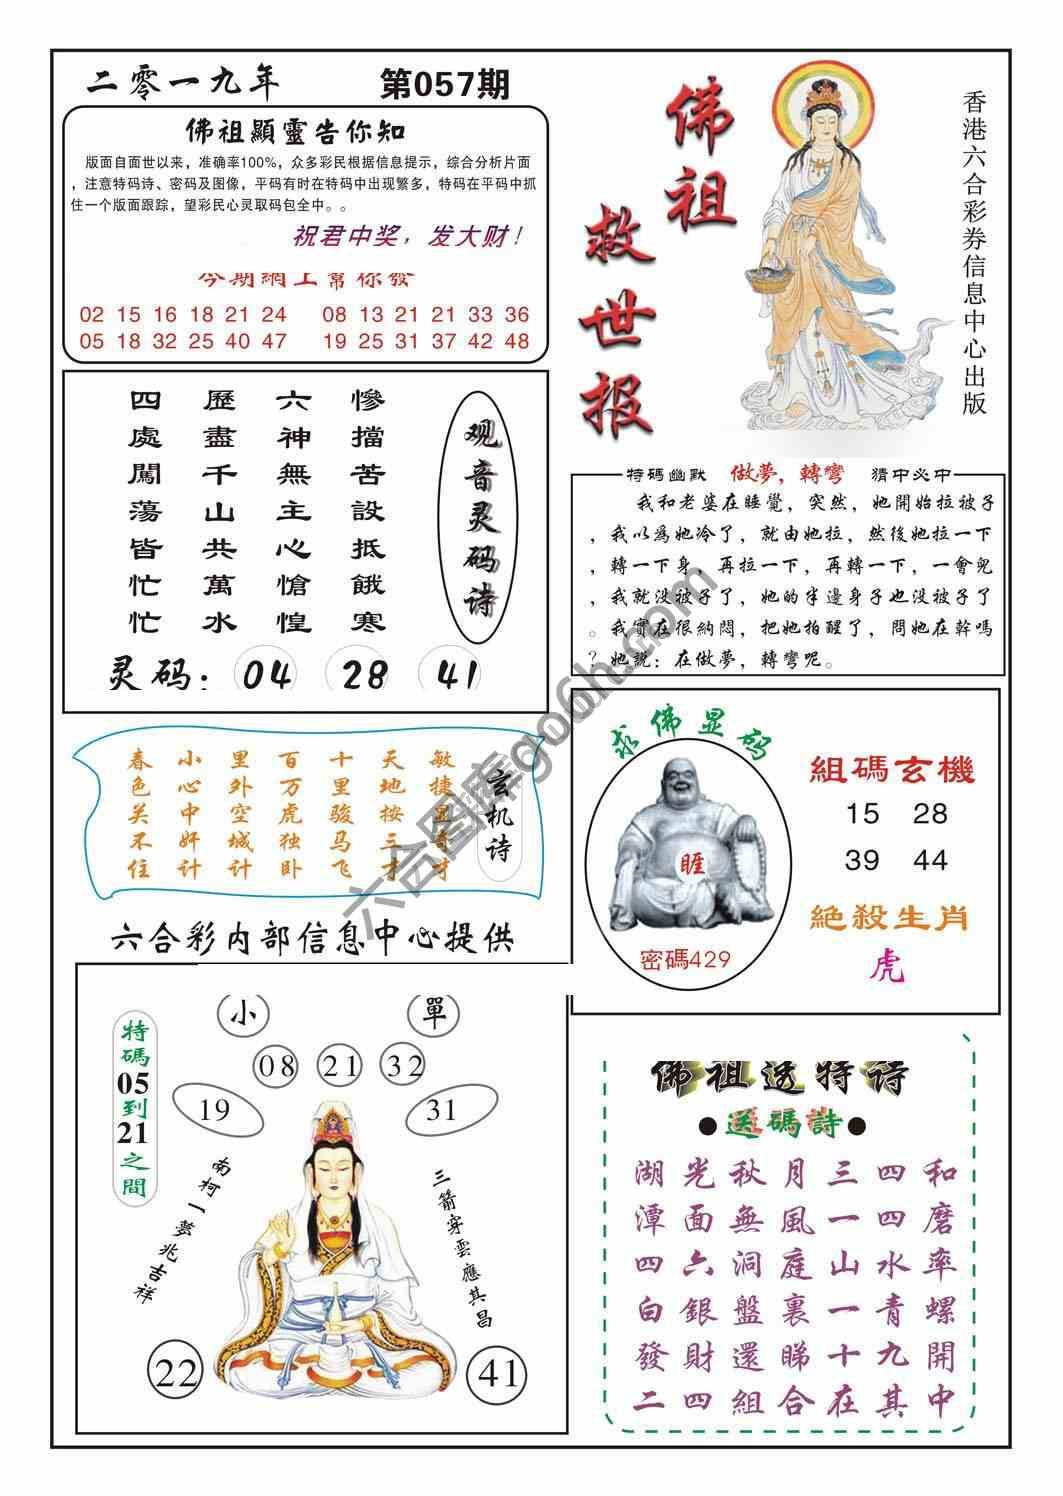 二零一九年 第057期
佛祖顯靈告你知
版面自面世以来，准确率100%，众多彩民根据信息提示，综合分析片面
，注意特码诗、密码及图像，平码有时在特码中出现繁多，特码在平码中抓
住一个版面跟踪，望彩民心灵取码包全中。。
祝君中奖，发大财！
今期網上幫你發
02 15 16 18 21 24 08 13 21 21 33 36
05 18 32 25 40 47 19 25 31 37 42 48
佛祖
救世报
香港六合彩券信息中心出版
四處闖蕩皆忙忙
歷盡千山共萬水
六神無主心愴惶
慘擋苦設抵餓寒
观音灵码诗
灵码：04 28 41
特碼幽默 做夢，轉彎 猜中必中
我和老婆在睡覺，突然，她開始拉被子
，我以爲她冷了，就由她拉，然後她拉一下
，轉一下身，再拉一下，再轉一下，一會兒
，我就没被子了，她的半邊身子也没被子了
。我實在很納悶，把她拍醒了，問她在幹嗎
？她説：在做夢，轉彎呢。
春色关不住
小心中奸计
里外空城计
百万虎独卧
十里骏马飞
天地按三才
敏捷显奇才
玄机诗
求佛显码
睚
密碼429
組碼玄機
15 28
39 44
絕殺生肖
虎
六合彩内部信息中心提供
特碼05到21之間
小 單
08 21 32
19 31
南柯一夢兆吉祥
三箭穿雲應其昌
22 41
佛祖透特诗
●送碼詩●
湖光秋月三四和
潭面無風一四磨
四六洞庭山水率
白銀盤裏一青螺
發財還睇十九開
二四組合在其中
六合图库go6h.com